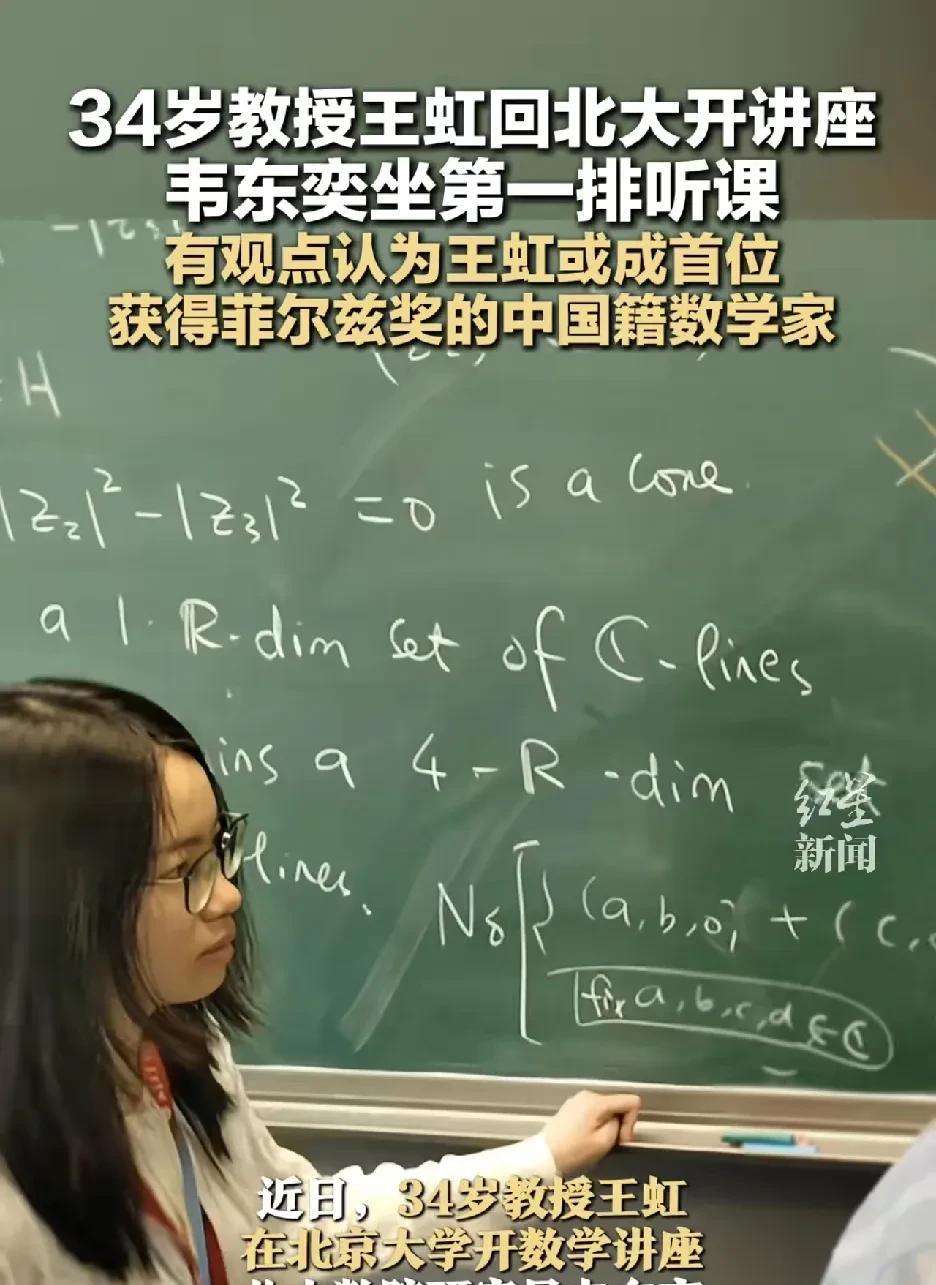 34岁教授王虹回北大开讲座
韦东奕坐第一排听课
有观点认为王虹或成首位
获得菲尔兹奖的中国籍数学家
H
|z₂|² - |z₃|² = 0 is a cone.
a 1-ℝ-dim set of ℂ-lines
ins a 4-ℝ-dim set
lines.
红星
新闻
Nδ [ { (a,b,0) + (c,
fix a,b,c,d ∈ ℂ
近日，34岁教授王虹
在北京大学开数学讲座